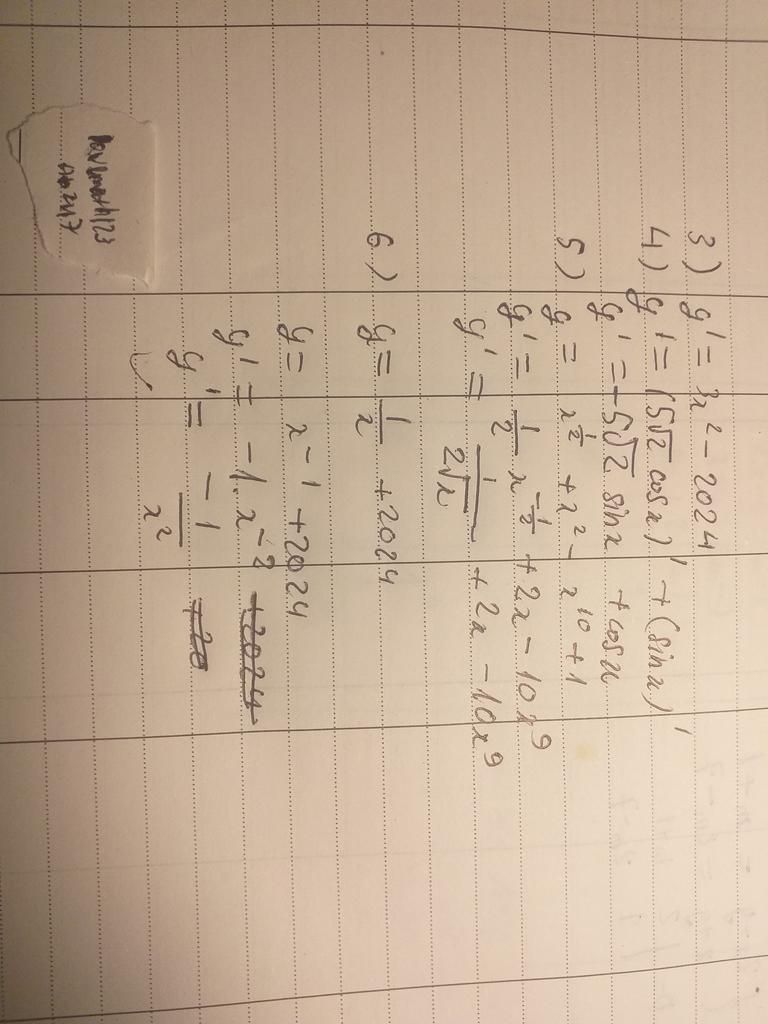 3) y' = 3x² - 2024
4) y' = (5√2 cosx)' + (sinx)'
y' = -5√2 sinx + cosx
5) y = x^½ + x² - x¹⁰ + 1
y' = ½ x^-½ + 2x - 10x⁹
y' = 1/(2√x) + 2x - 10x⁹
6) y = 1/x + 2024
y = x⁻¹ + 2024
y' = -1 · x⁻² +2024
y' = -1/x² +20